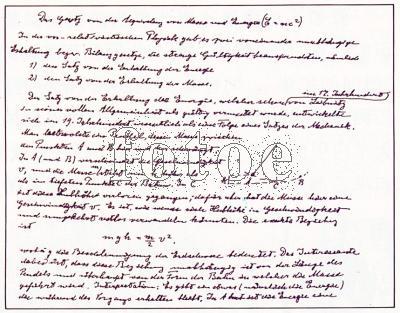 Das Gesetz von der Äquivalenz von Masse und Energie (E = mc²)
In der vor-relativistischen Physik gab es zwei voneinander unabhängige
Erhaltung bezw. Bilanzgesetze, die strenge Gültigkeit beanspruchten, nämlich
1) den Satz von der Erhaltung der Energie
2) den Satz von der Erhaltung der Masse.
im 17. Jahrhundert
Der Satz von der Erhaltung der Energie, welcher schon von Leibniz
in seiner vollen Allgemeinheit als gültig vermutet wurde, entwickelte
sich im 19. Jahrhundert wesentlich als eine Folge eines Satzes der Mechanik.
Man betrachte ein Pendel, dessen Masse zwischen
den Punkten A und B hin und her schwingt.
In A (und B) verschwindet die Geschwindigkeit
v, und die Masse
im tiefsten Punkte C der Bahn. In C
ist diese Hubhöhe verloren gegangen; dafür aber hat die Masse hier eine
Geschwindigkeit v. Es ist, wie wenn sich Hubhöhe in Geschwindigkeit
und umgekehrt verwandeln könnten. Die exakte Beziehung
ist
mgh = m/2 v²,
wobei g die Beschleunigung der Erdschwere bedeutet. Das Interessante
dabei ist, dass diese Beziehung unabhängig ist von der Länge des
Pendels und überhaupt von der Form der Bahn, in welcher die Masse
geführt wird. Interpretation: Es gibt ein etwas (nämlich die Energie)
das während des Vorgangs erhalten bleibt. In A ist die Energie eine
fotoe